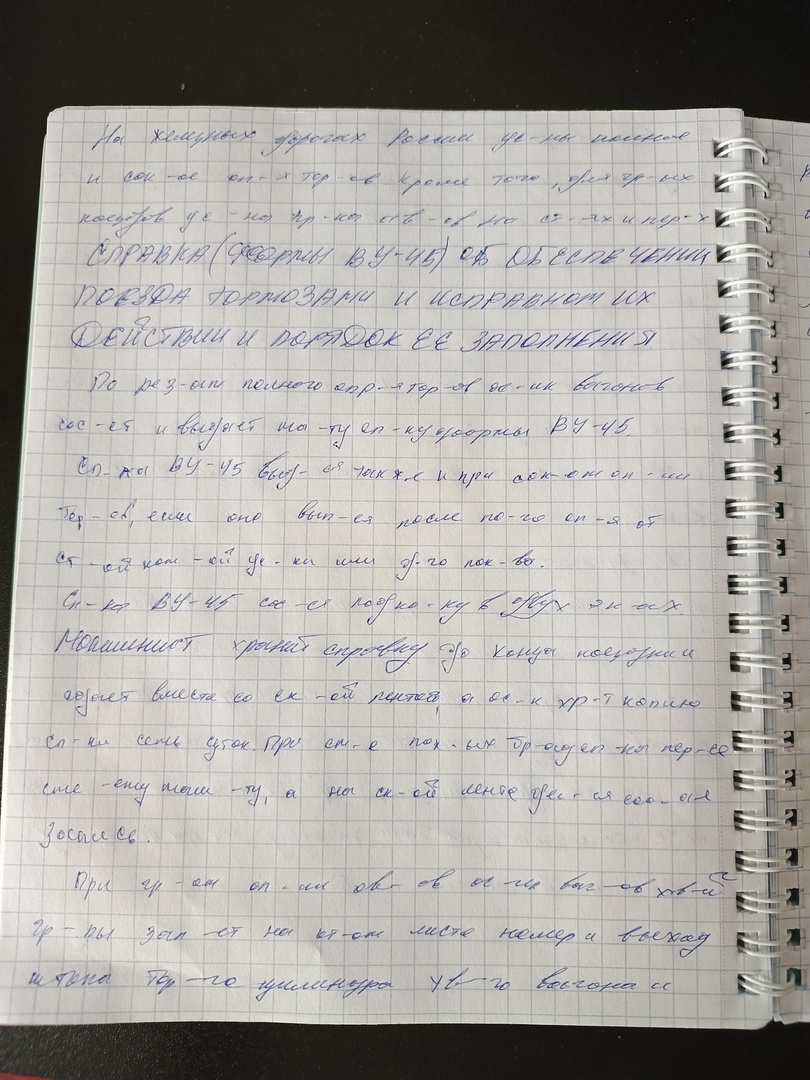 На железных дорогах России ус-ны полное
и сок-ое оп-я тор-ов кроме того, для гр-ых
поездов ус-ны пр-ка авт-ов на ст-ях и пер-х
СПРАВКА (ФОРМЫ ВУ-45) ОБ ОБЕСПЕЧЕНИИ
ПОЕЗДА ТОРМОЗАМИ И ИСПРАВНОМ ИХ
ДЕЙСТВИИ И ПОРЯДОК ЕЕ ЗАПОЛНЕНИЯ
По рез-ам полного опр-я тор-ов ос-ик вагонов
сос-ет и выдает ма-ту сп-ку формы ВУ-45.
Сп-ка ВУ-45 выд-ся также и при сок-ом оп-ии
тор-ов, если оно вып-ся после по-го оп-я от
ст-ой ком-ой ус-ки или д-го лок-ва.
Сп-ка ВУ-45 сос-ся под ко-ку в двух эк-ах.
Машинист хранит справку до конца поездки и
сдает вместе со ск-ой лентой, а ос-к хр-т копию
сп-ки семь суток. При см-е лок-ых бр-ад сп-ка пер-ся
сме-ему маш-ту, а на ск-ой ленте дел-ся соо-ая
запись.
При гр-ом оп-ии ав-ов ос-ик ваг-ов хв-й
гр-ны зап-ет на от-ом листе номер и выход
штока тор-го цилиндра хв-го вагона и